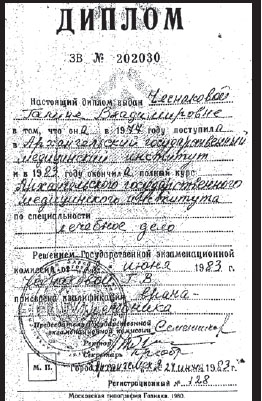 ДИПЛОМ
ЗВ № 202030
Настоящий диплом выдан Чесноковой
Галине Владимировне
в том, что она в 1977 году поступила
в Архангельский государственный
медицинский институт
и в 1983 году окончила полный курс
Архангельского государственного
медицинского института
по специальности
лечебное дело
Решением Государственной экзаменационной
комиссии от июня 1983 г.
Чесноковой Г. В.
присвоена квалификация врача-
лечебника
Председатель Государственной
экзаменационной комиссии
Ректор
Секретарь
М. П.
Город Архангельск 28 июня 1983 г.
Регистрационный № 128
Московская типография Гознака. 1980.